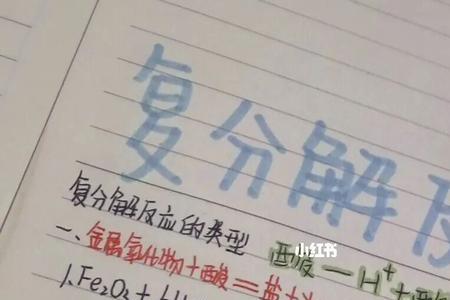 复分解反
复分解反应的类型
一、金属氧化物+酸=盐+
酸—H⁺+酸
1.Fe₂O₃+6H
小红书